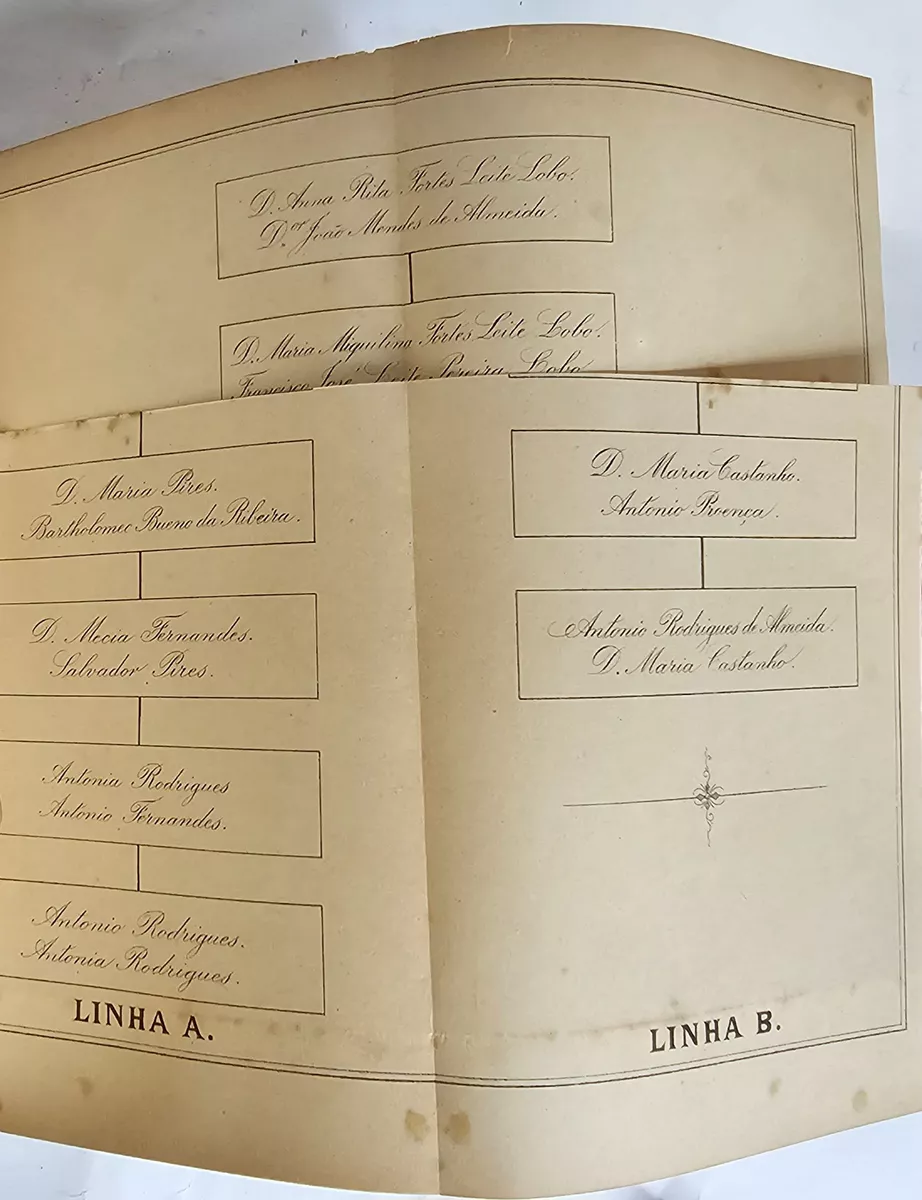 D. Anna Rita Fortes Leite Lobo.
D.or João Mendes de Almeida.
D. Maria Miquilina Fortes Leite Lobo.
Francisco José Leite Pereira Lobo
D. Maria Pires.
Bartholomeo Bueno da Ribeira.
D. Mecia Fernandes.
Salvador Pires.
Antonia Rodrigues
Antonio Fernandes.
Antonio Rodrigues.
Antonia Rodrigues.
LINHA A.
D. Maria Castanho.
Antonio Proença.
Antonio Rodrigues de Almeida.
D. Maria Castanho.
LINHA B.